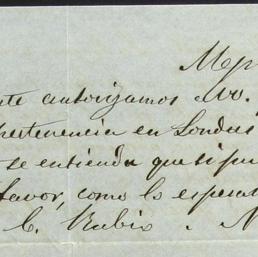 Mej
nte autorizamos No.
pertenencia en Londres
se entienda que si por
favor, como lo espera
C. Rubio . N